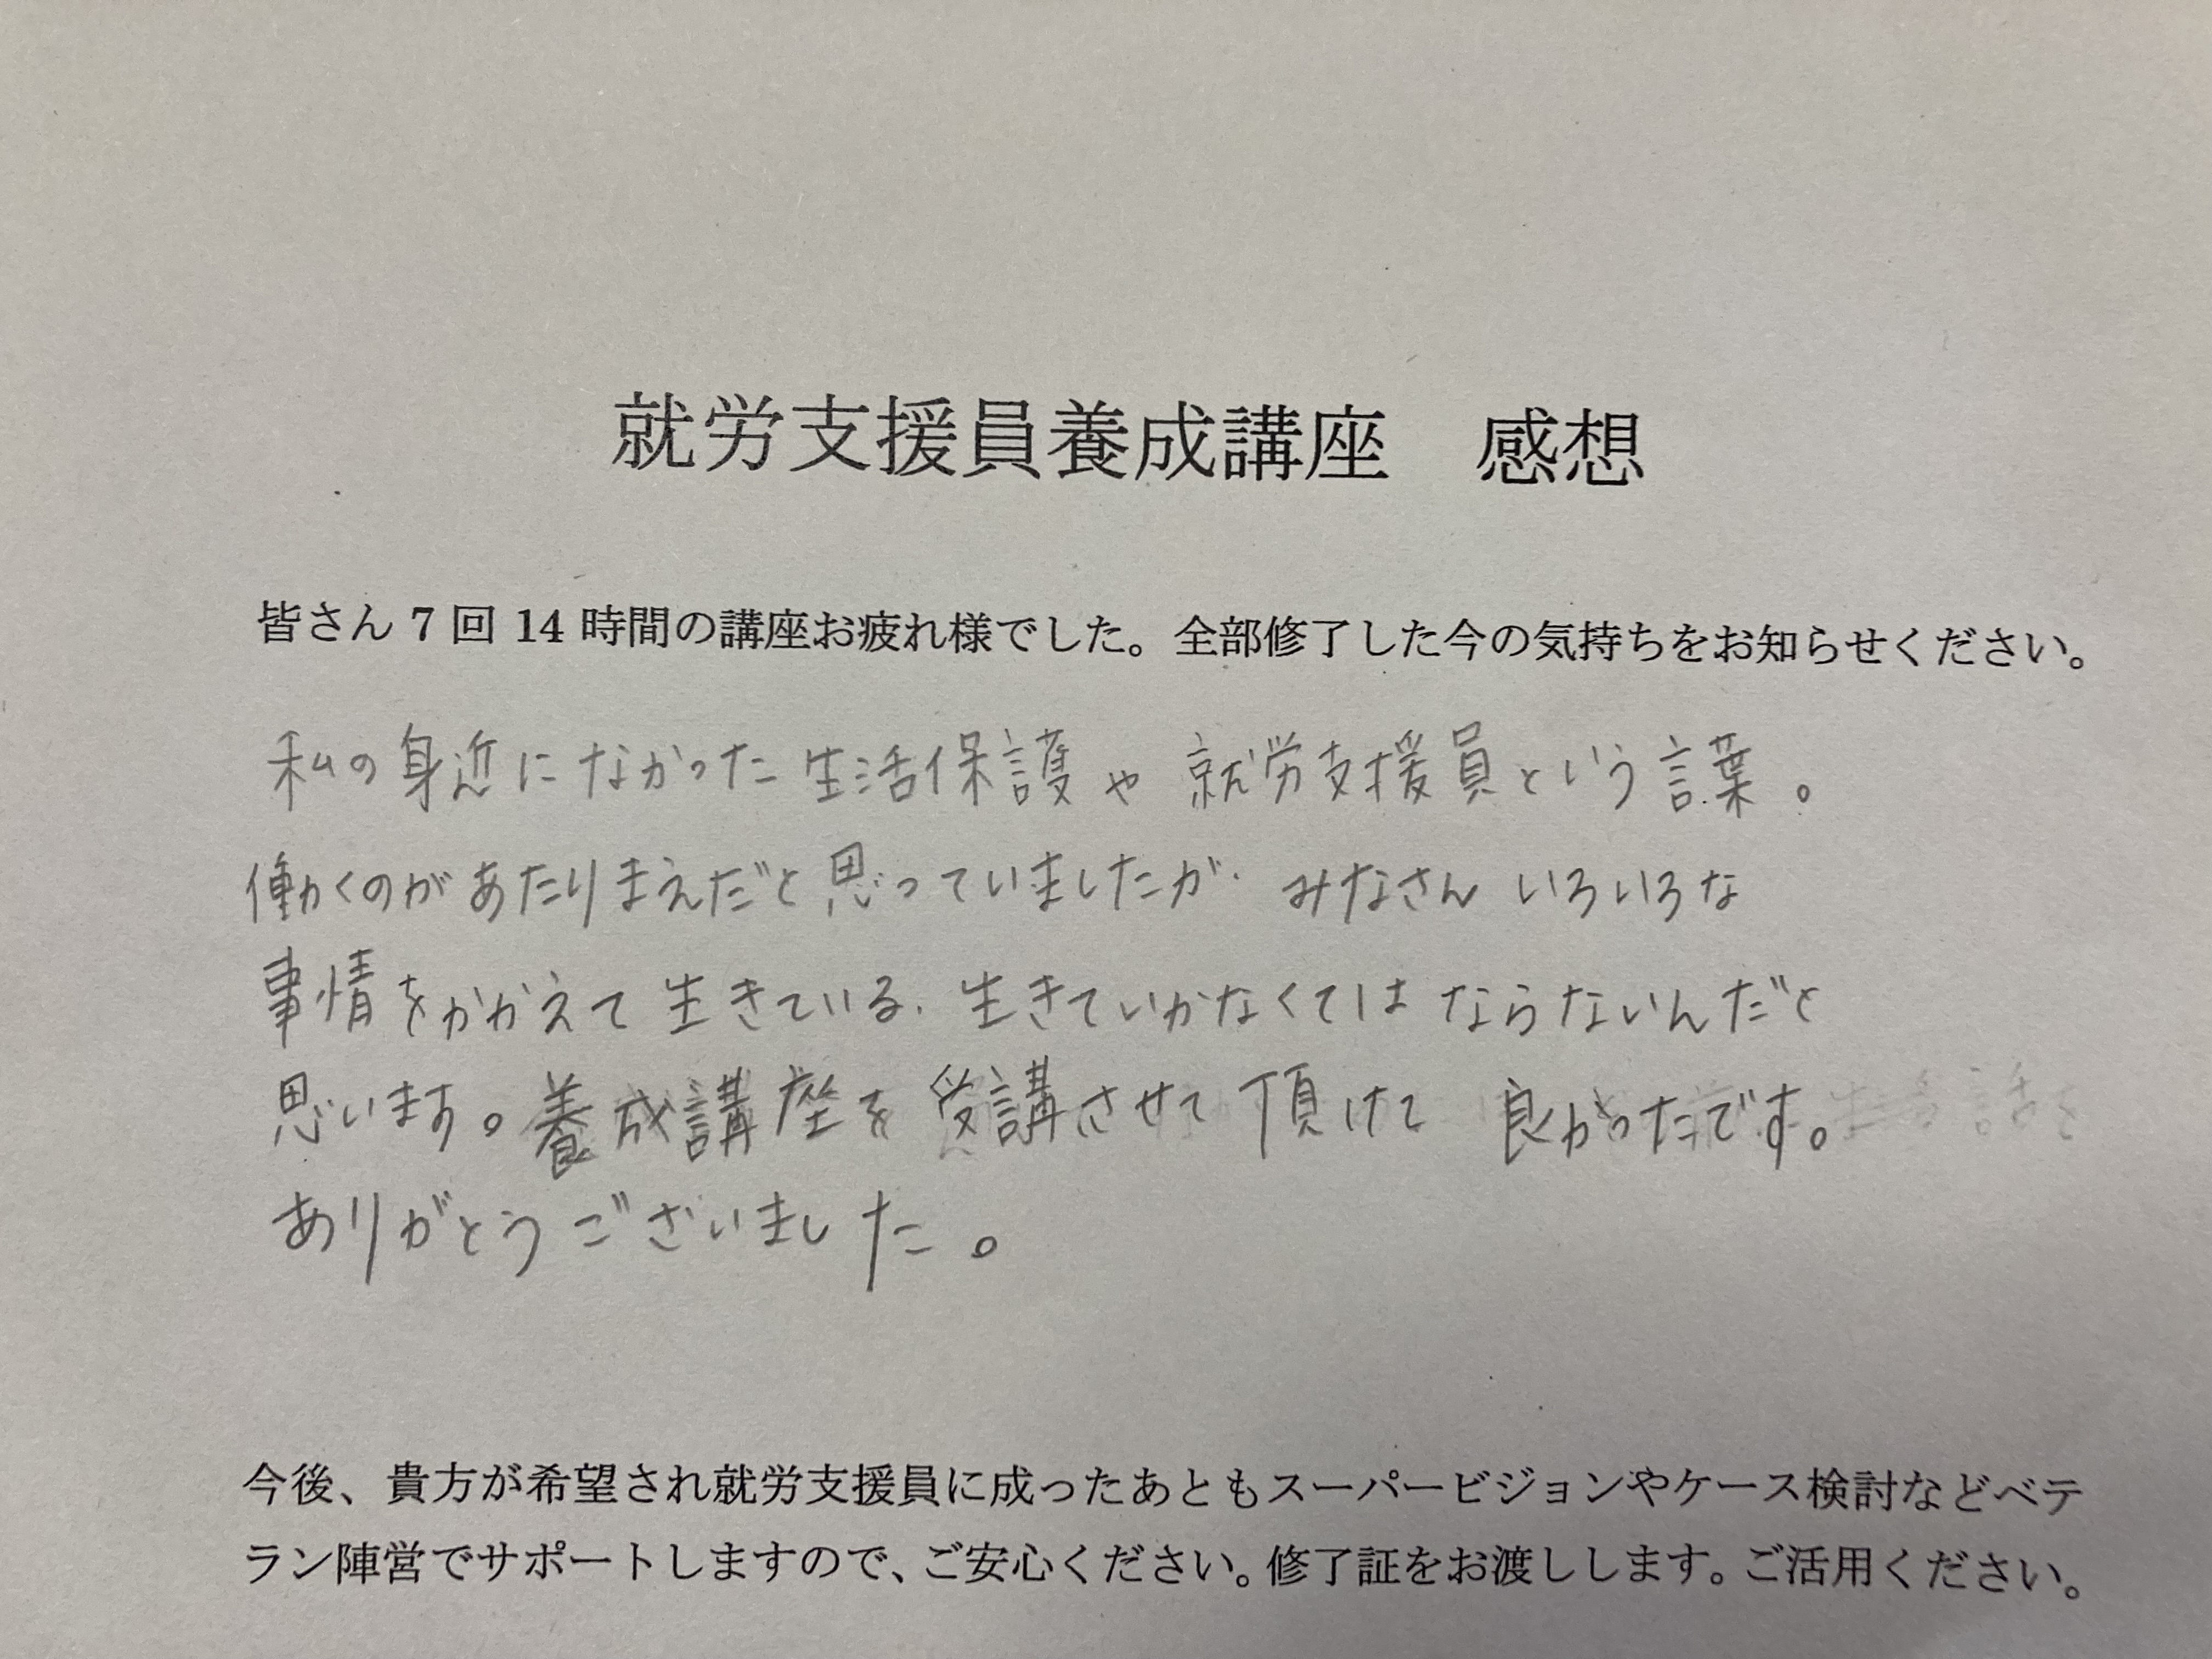 就労支援員養成講座　感想
皆さん 7 回 14 時間の講座お疲れ様でした。全部修了した今の気持ちをお知らせください。
私の身近になかった生活保護や就労支援員という言葉。
働くのがあたりまえだと思っていましたが、みなさん いろいろな
事情をかかえて生きている、生きていかなくてはならないんだと
思います。養成講座を受講させて頂けて 良かったです。
ありがとうございました。
今後、貴方が希望され就労支援員に成ったあともスーパービジョンやケース検討などベテ
ラン陣営でサポートしますので、ご安心ください。修了証をお渡しします。ご活用ください。